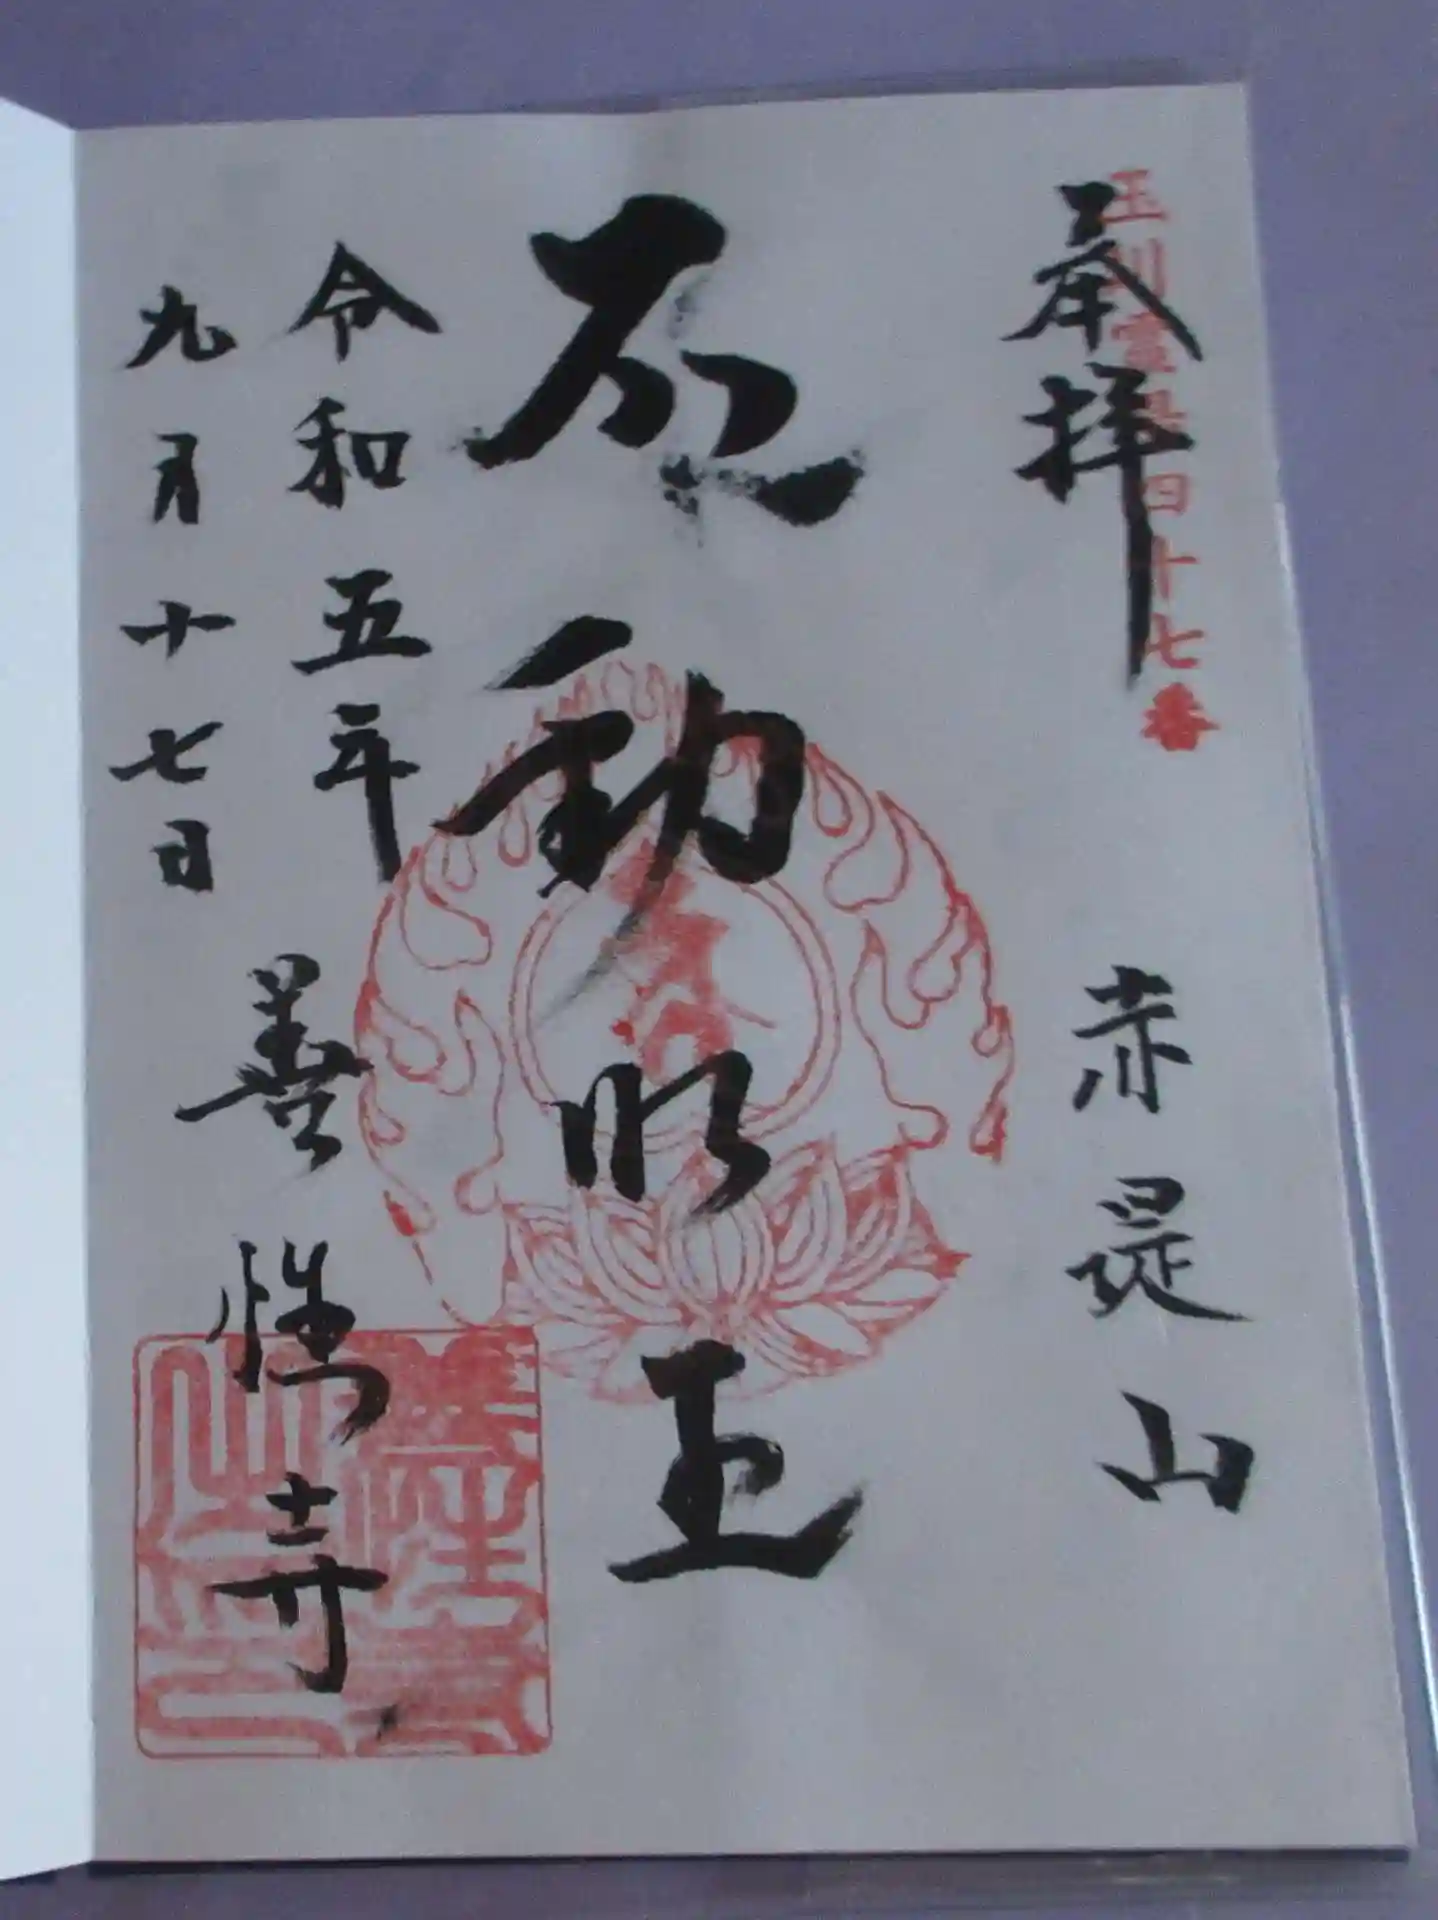 玉川霊場四十七番
奉拝
赤堤山
不動明王
令和五年
九月十七日
善性寺